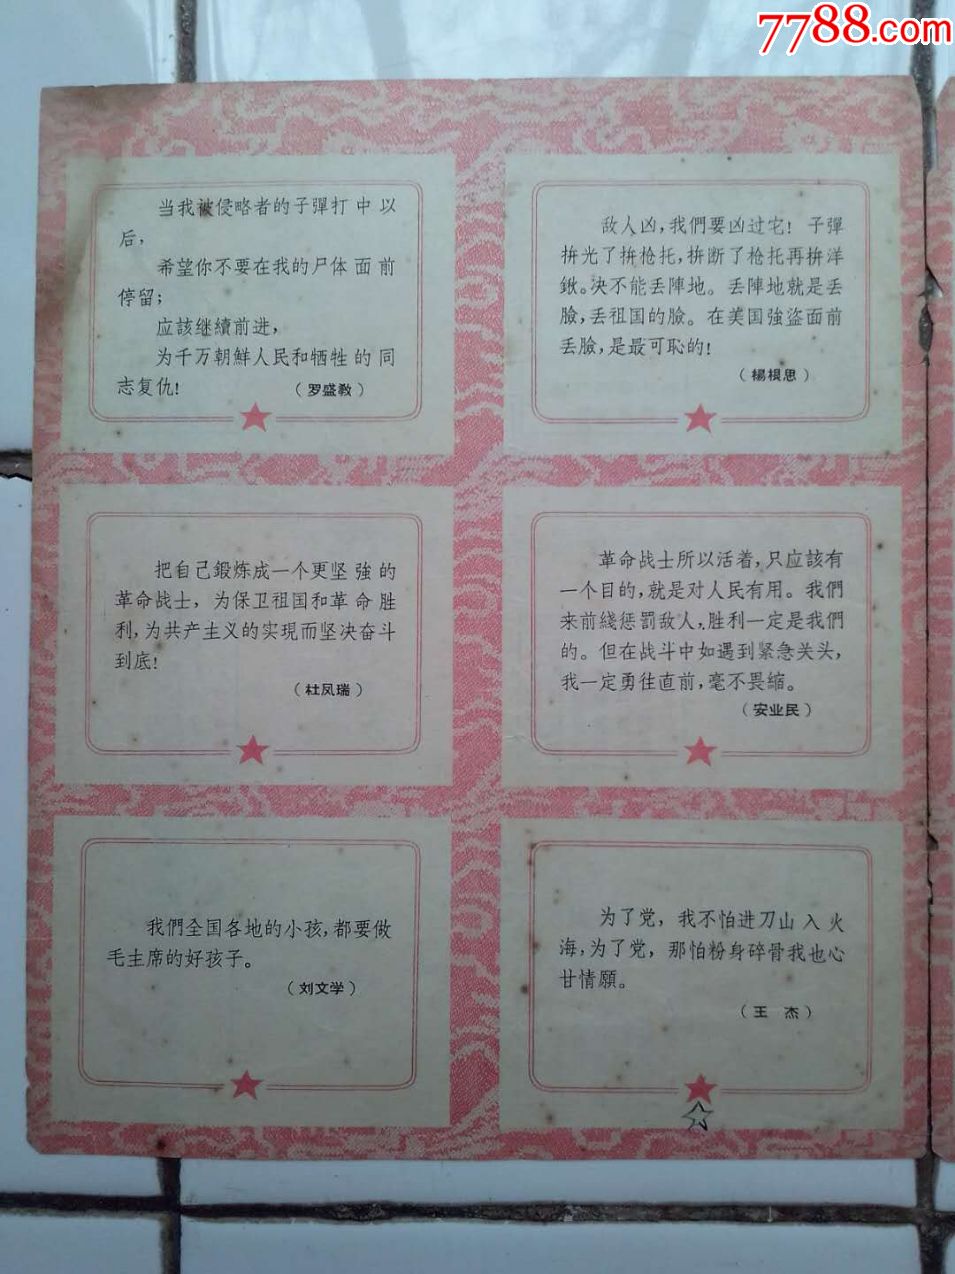 7788.com
当我被侵略者的子彈打中以
后，
希望你不要在我的尸体面前
停留；
应該继續前进，
为千万朝鮮人民和牺牲的同
志复仇！
（罗盛教）
敌人凶，我們要凶过它！子彈
拚光了拚枪托，拚断了枪托再拚洋
鍬。决不能丢陣地。丢陣地就是丢
臉，丢祖国的臉。在美国強盗面前
丢臉，是最可恥的！
（楊根思）
把自己鍛炼成一个更坚強的
革命战士，为保卫祖国和革命胜
利，为共产主义的实現而坚决奋斗
到底！
（杜凤瑞）
革命战士所以活着，只应該有
一个目的，就是对人民有用。我們
来前綫惩罰敌人，胜利一定是我們
的。但在战斗中如遇到紧急关头，
我一定勇往直前，毫不畏縮。
（安业民）
我們全国各地的小孩，都要做
毛主席的好孩子。
（刘文学）
为了党，我不怕进刀山入火
海，为了党，那怕粉身碎骨我也心
甘情願。
（王杰）